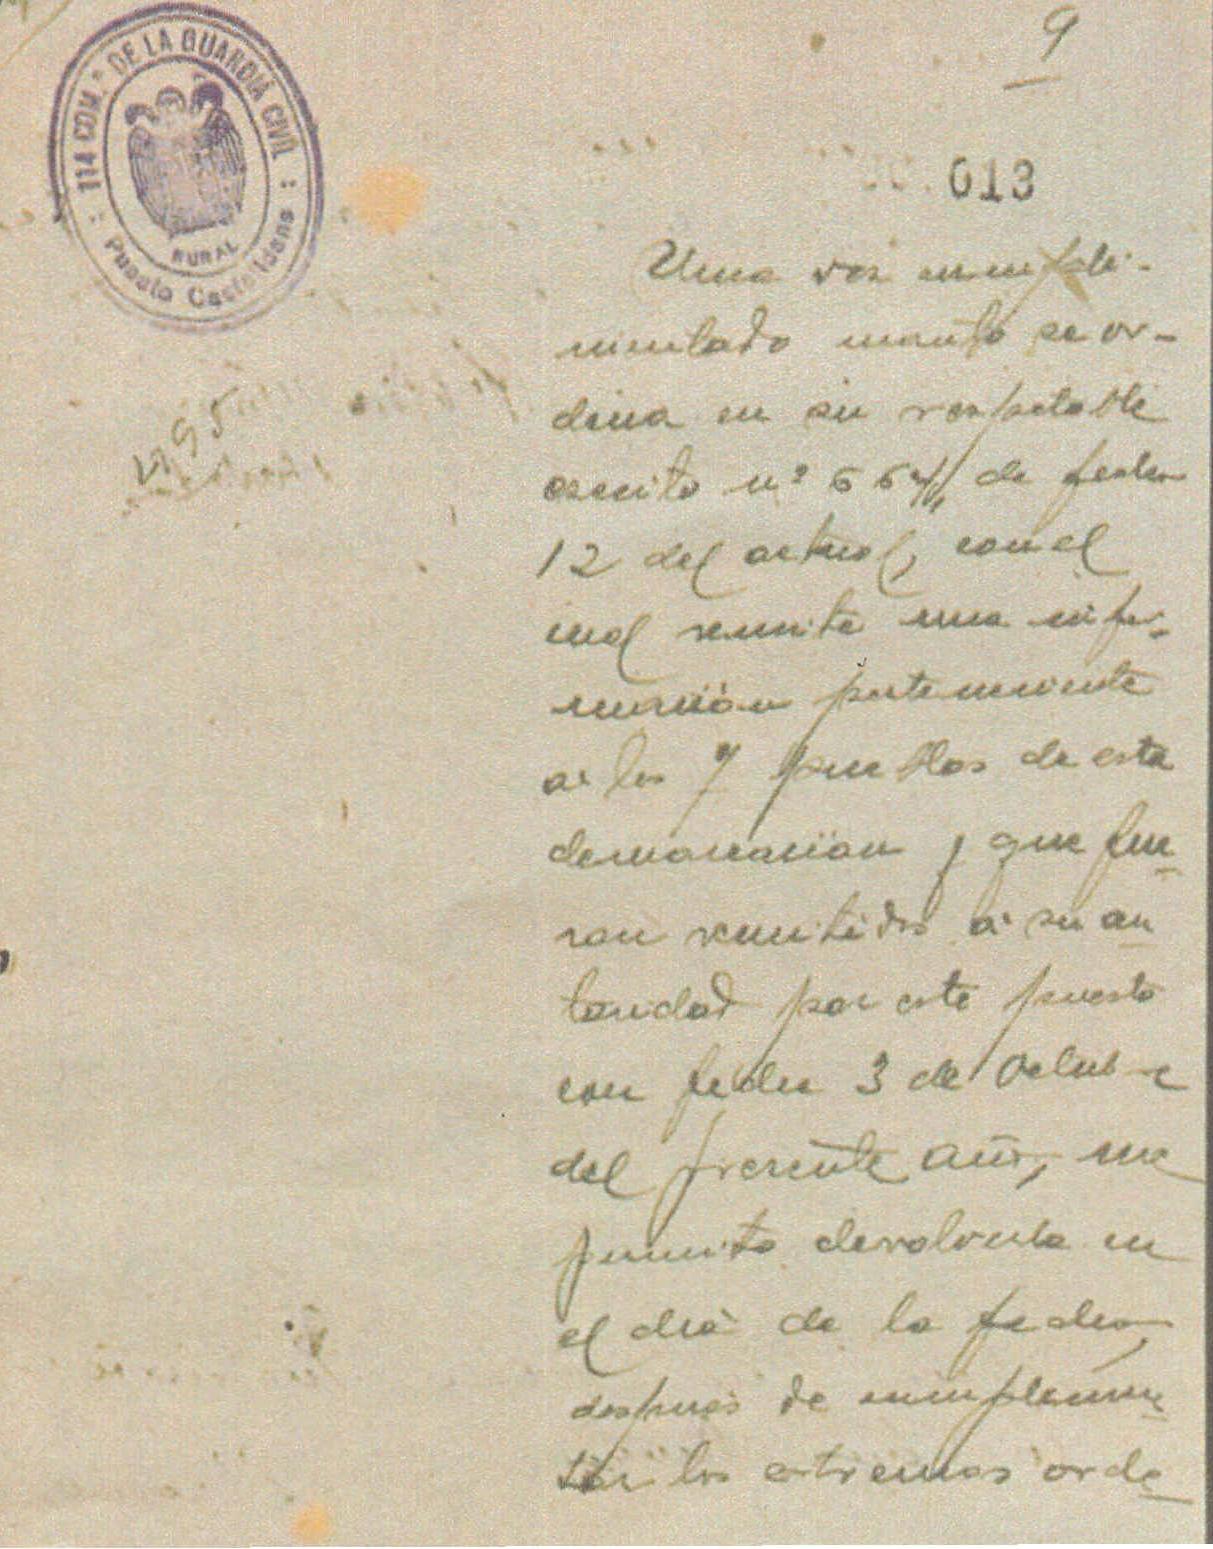 9
114 COM.ª DE LA GUARDIA CIVIL
RURAL
Puesto Castelldans
013
495
Una vez cumpli-
mentado cuanto se or-
dena en su respetable
escrito nº 664, de fecha
12 del actual, con el
cual remite una infor-
mación perteneciente
a los 7 pueblos de esta
demarcación y que fue-
ron remitidos a su au
toridad por este puesto
con fecha 3 de Octubre
del presente año, me
permito devolverla en
el día de la fecha,
despues de cumplimen-
tar los extremos orde-